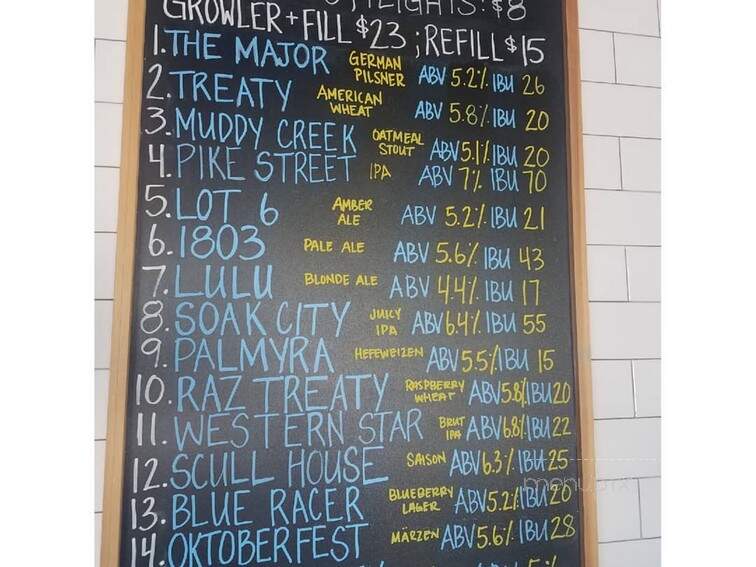 FLIGHTS: $8
GROWLER + FILL $23 ; REFILL $15
1. THE MAJOR GERMAN PILSNER ABV 5.2% IBU 26
2. TREATY AMERICAN WHEAT ABV 5.8% IBU 20
3. MUDDY CREEK OATMEAL STOUT ABV 5.1% IBU 20
4. PIKE STREET IPA ABV 7% IBU 70
5. LOT 6 AMBER ALE ABV 5.2% IBU 21
6. 1803 PALE ALE ABV 5.6% IBU 43
7. LULU BLONDE ALE ABV 4.4% IBU 17
8. SOAK CITY JUICY IPA ABV 6.4% IBU 55
9. PALMYRA HEFEWEIZEN ABV 5.5% IBU 15
10. RAZ TREATY RASPBERRY WHEAT ABV 5.8% IBU 20
11. WESTERN STAR BRUT IPA ABV 6.8% IBU 22
12. SCULL HOUSE SAISON ABV 6.3% IBU 25
13. BLUE RACER BLUEBERRY LAGER ABV 5.2% IBU 20
14. OKTOBERFEST MÄRZEN ABV 5.6% IBU 28